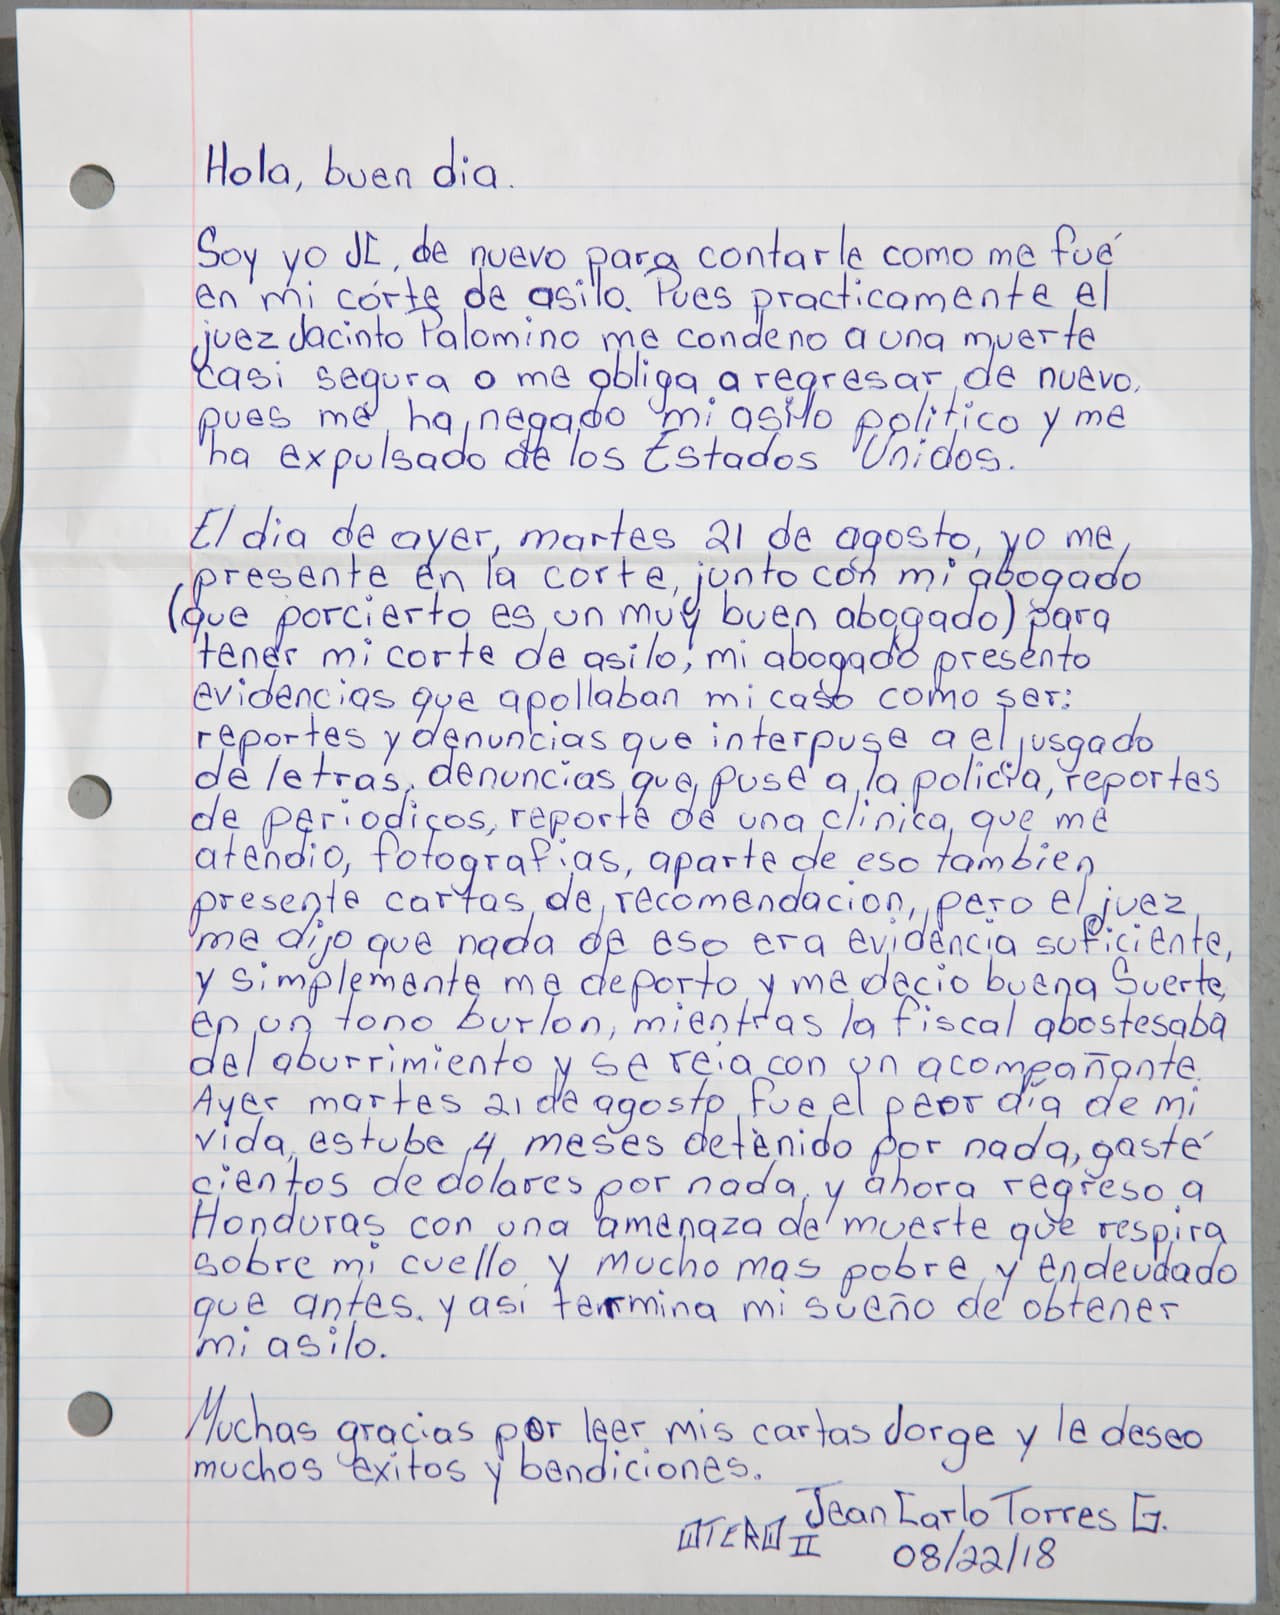 Hola, buen dia.
Soy yo JC, de nuevo para contarle como me fué
en mi corte de asilo. Pues practicamente el
juez Jacinto Palomino me condeno a una muerte
casi segura o me obliga a regresar de nuevo,
pues me ha negado mi asilo politico y me
ha expulsado de los Estados Unidos.
El dia de ayer, martes 21 de agosto, yo me
presente en la corte, junto con mi abogado
(que porcierto es un muy buen abogado) para
tener mi corte de asilo, mi abogado presento
evidencias que apollaban mi caso como ser:
reportes y denuncias que interpuse a el jusgado
de letras, denuncias que puse a la policia, reportes
de periodicos, reporte de una clinica que me
atendio, fotografias, aparte de eso tambien
presente cartas de recomendacion, pero el juez
me dijo que nada de eso era evidencia suficiente,
y simplemente me deporto y me decio buena Suerte,
en un tono burlon, mientras la fiscal abostesaba
del aburrimiento y se reia con un acompañante.
Ayer martes 21 de agosto fue el peor dia de mi
vida, estube 4 meses detenido por nada, gasté
cientos de dolares por nada, y ahora regreso a
Honduras con una amenaza de muerte que respira
sobre mi cuello y mucho mas pobre y endeudado
que antes. y asi termina mi sueño de obtener
mi asilo.
Muchas gracias por leer mis cartas Jorge y le deseo
muchos exitos y bendiciones.
Jean Carlo Torres G.
OTERO II 08/22/18